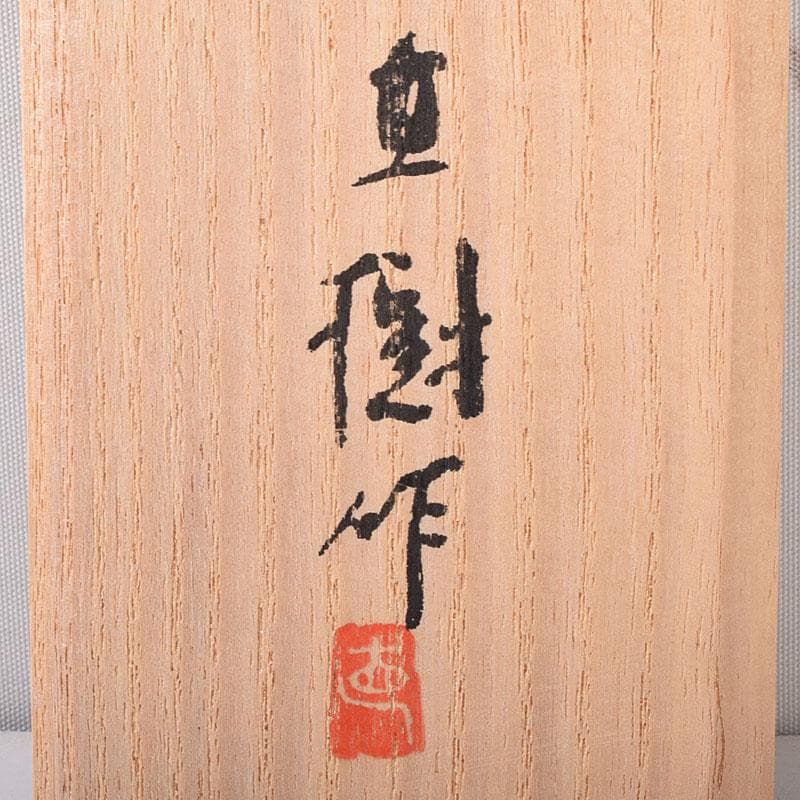 直樹作